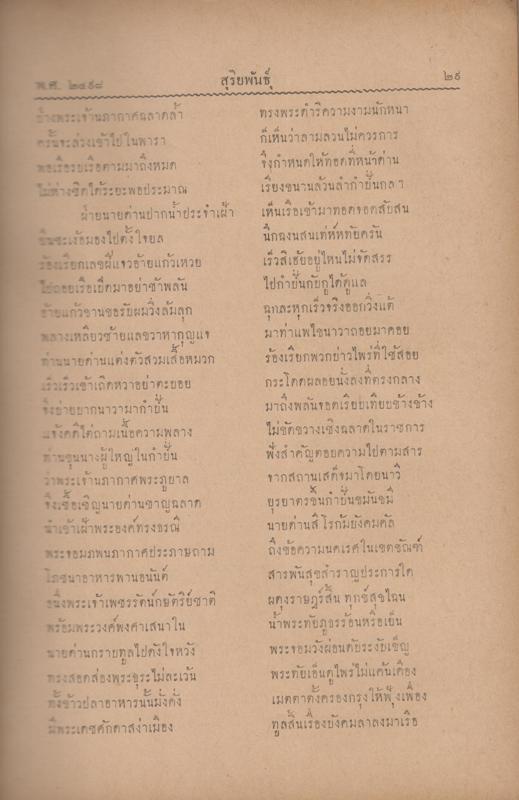 พ.ศ. ๒๔๙๘ สุริยพันธุ์ ๒๙
ข้างพระเจ้านภากาศฉลาดล้ำ ทรงพระดำริความงามนักหนา
ครั้นจะล่วงเข้าไปในพารา ก็เห็นว่าลามลวนไม่ควรการ
พอเรือรบเรือตามมาถึงหมด จึงกำหนดให้ทอดที่หน้าด่าน
ไม่ห่างชิดได้ระยะพอประมาณ เรียงขนานล้วนลำกำปั่นกล ฯ
ฝ่ายนายด่านปากน้ำประจำเฝ้า เห็นเรือเข้ามาทอดจอดสับสน
ขึ้นชะเง้อมองไปตั้งใจยล นึกฉงนสนเท่ห์หทัยครัน
ร้องเรียกเลขผีแขวอ้ายแก้วเหวย เร็วสิเฮ้ยอยู่ไหนไม่จัดสรร
ใช่ถอยเรือเอ็ดมาอย่าช้าพลัน ไปกำปั่นกับกูได้ดูแล
อ้ายแก้วขานขอรับผมวิ่งล้มลุก ฉุกละหุกเร็วจริงออกวิ่งแต้
พลางเหลียวซ้ายแลขวาหากุญแจ มาท่าแพไขนาวาถอยมาคอย
ท่านนายด่านแต่งตัวสวมเสื้อหมวก ร้องเรียกพวกบ่าวไพร่ที่ใช้สอย
เร็วเร็วเข้าเถิดหวาอย่าตะบอย กระโดดผลอยนั่งลงที่ตรงกลาง
จึงบ่ายบากนาวามากำปั่น มาถึงพลันจอดเรียบเทียบข้างข้าง
แจ้งคดีไต่ถามเนื้อความพลาง ไม่ขัดขวางเชิงฉลาดในราชการ
ท่านขุนนางผู้ใหญ่ในกำปั่น ฟังสำคัญตอบความไปตามสาร
ว่าพระเจ้านภากาศพระภูบาล จากสถานเสด็จมาโดยนาวี
จึงเชื้อเชิญนายด่านชาญฉลาด ยุรยาตรขึ้นกำปั่นขมันขมี
นำเข้าเฝ้าพระองค์ทรงธรณี นายด่านสิโรกม์บังคมคัล
พระจอมภพนภากาศประภาษถาม ถึงข้อความนคเรศในเขตขัณฑ์
โภชนาอาหารพานอนันต์ สารพันสุขสำราญประการใด
อนึ่งพระเจ้าเพชรรัตน์กษัตริย์ชาติ ผดุงราษฎร์สิ้น ทุกข์สุขไฉน
พร้อมพระวงศ์พงศาเสนาใน น้ำพระทัยภูธรร้อนหรือเย็น
นายด่านกราบทูลไปดังใจหวัง พระจอมวังผ่อนดับระงับเข็ญ
ทรงสอดส่องพระธุระไม่ละเว้น พระทัยเอ็นดูไพร่ไม่แค้นเคือง
ทั้งข้าวปลาอาหารนั้นมั่งคั่ง เมตตาตั้งครองกรุงให้ฟุ้งเฟื่อง
มีพระเดชศักดาสง่าเมือง ทูลสิ้นเรื่องบังคมลาลงมาเรือ